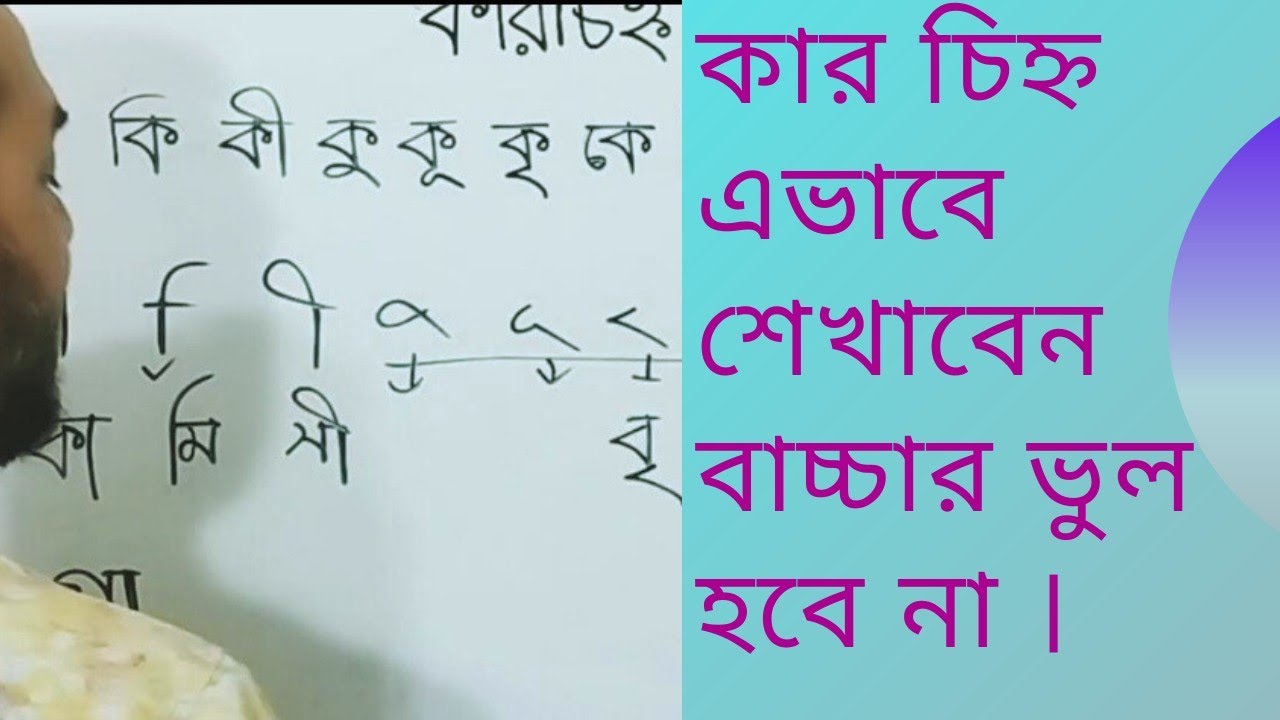 কারচিহ্ন
কি কী কু কূ কৃ কে
া ি ী ু ূ ৃ
কা মি সী বৃ
কার চিহ্ন
এভাবে
শেখাবেন
বাচ্চার ভুল
হবে না ।